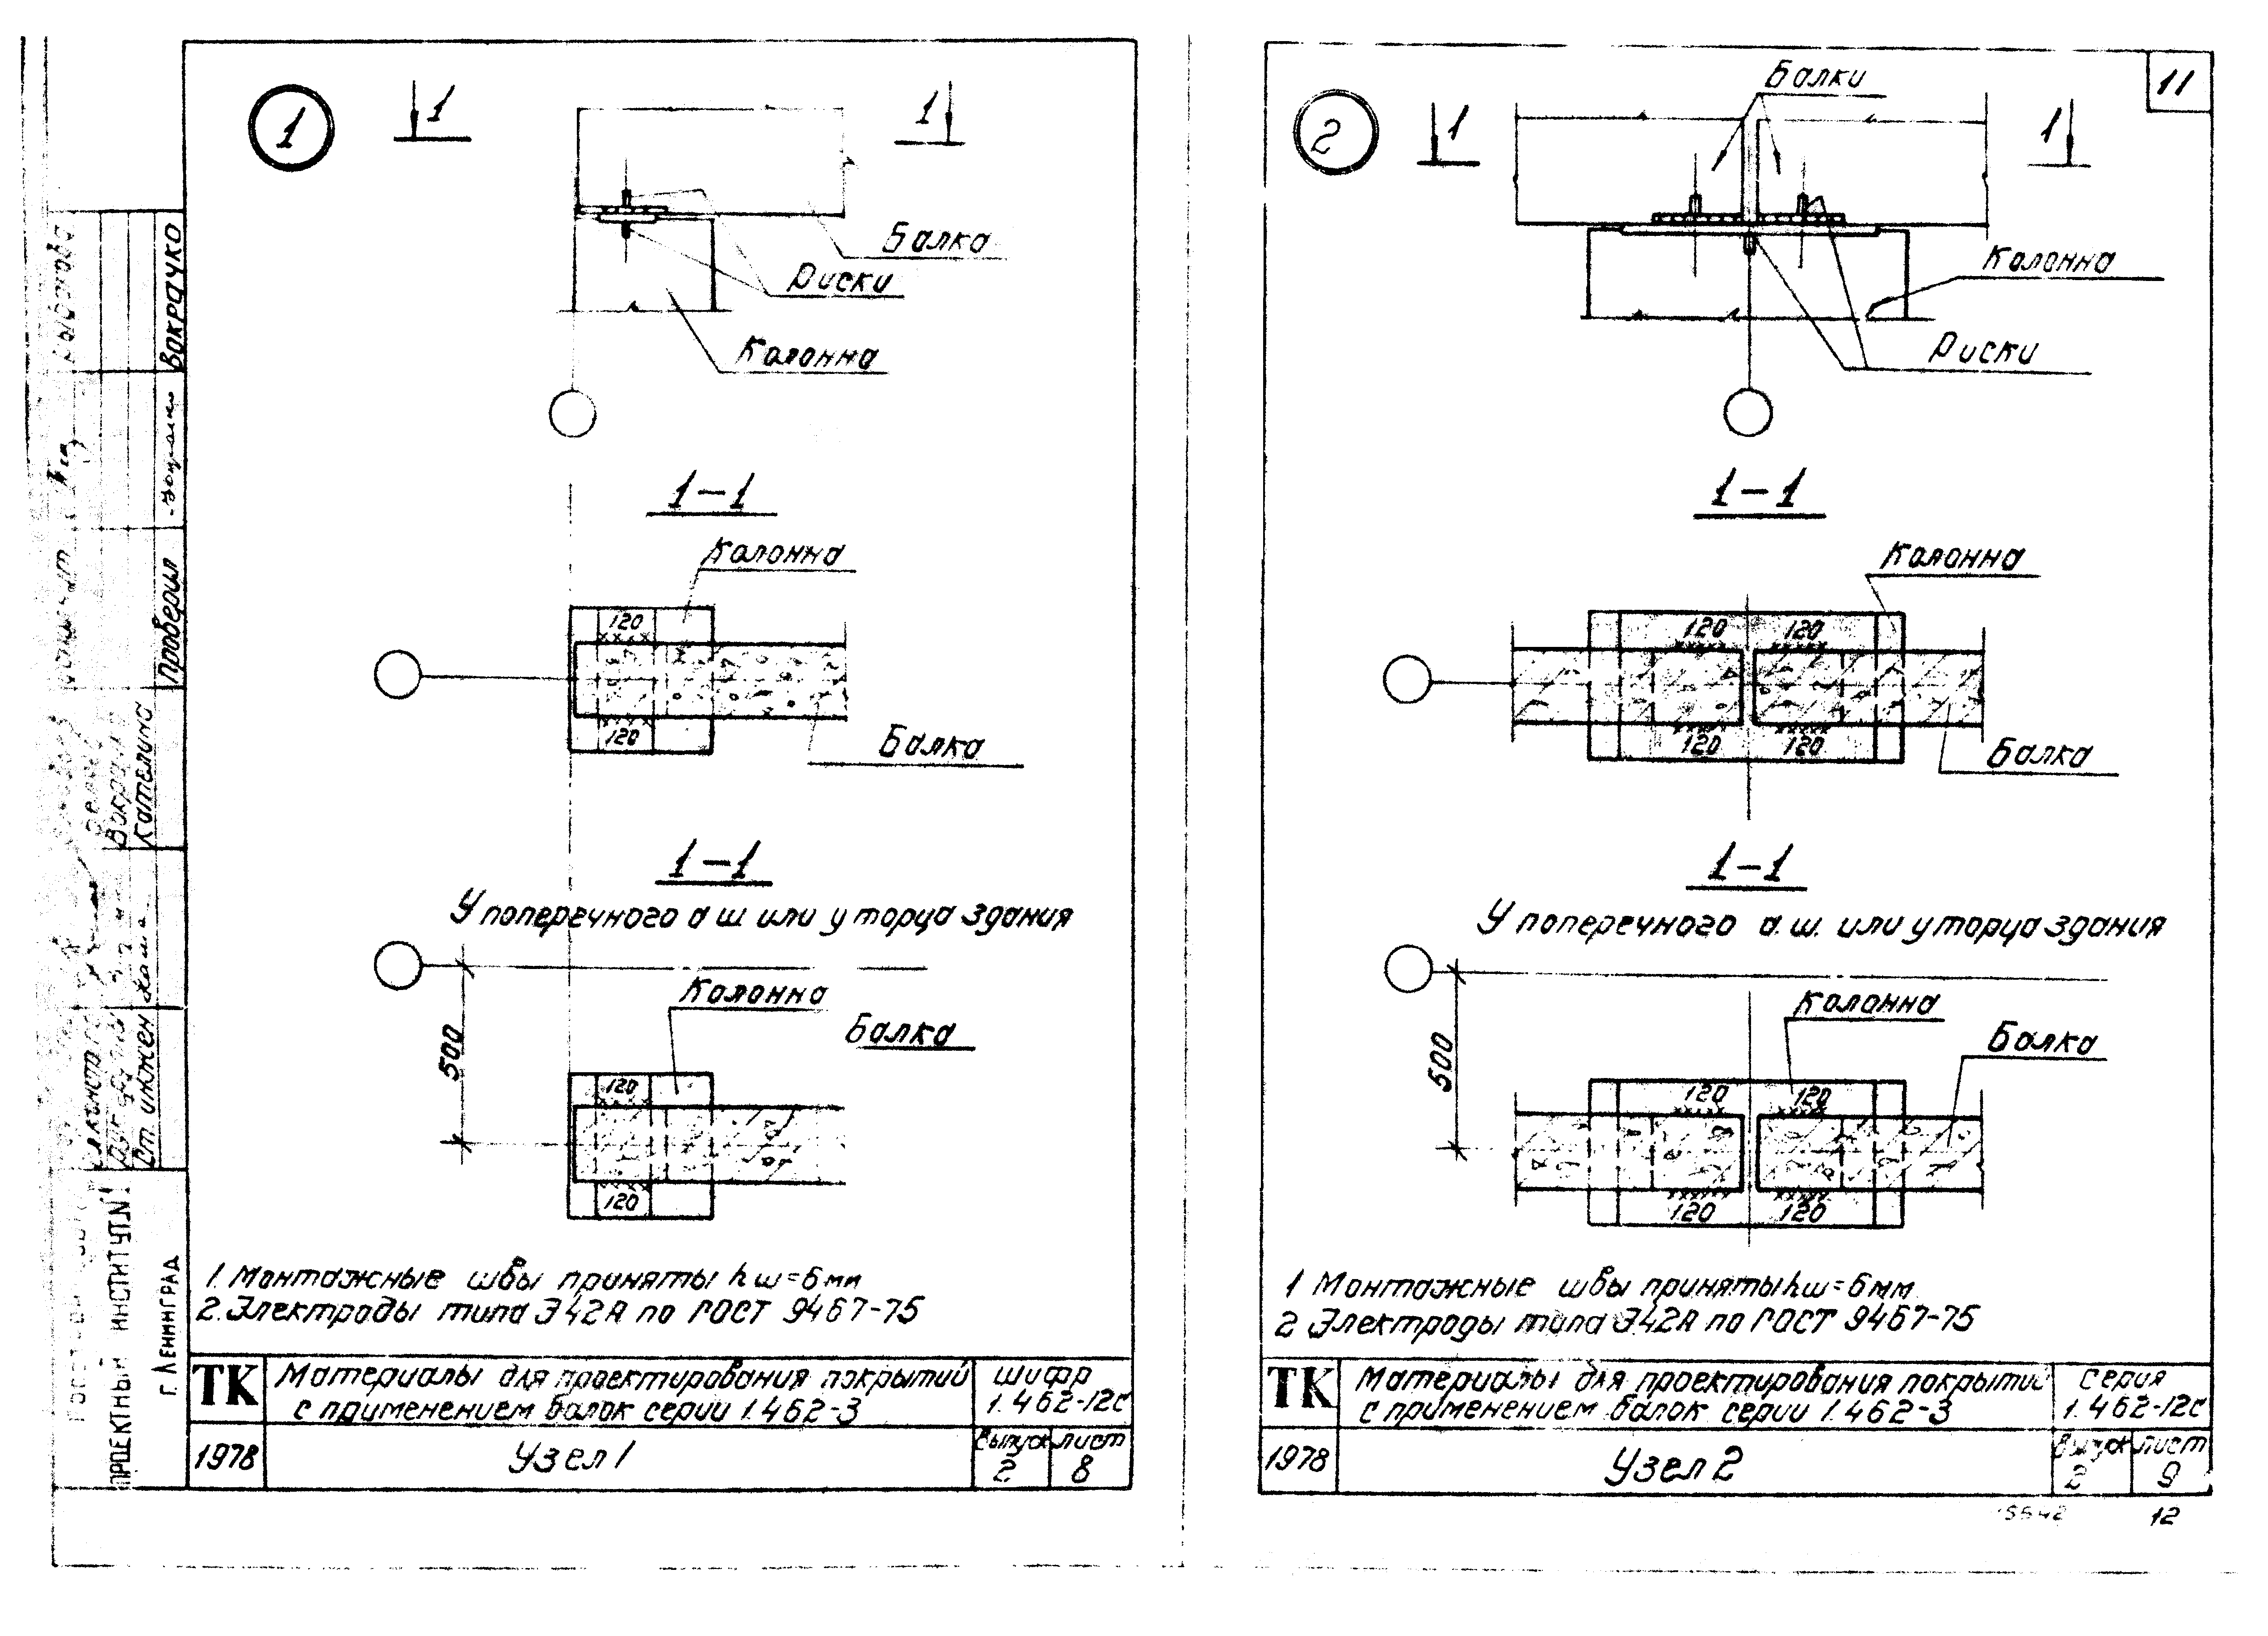 1
1
1
Балка
Риски
Колонна
1-1
Колонна
120
120
Балка
1-1
У поперечного а ш или у торца здания
Колонна
Балка
500
120
120
1. Монтажные швы приняты hш=6мм
2. Электроды типа Э42А по ГОСТ 9467-75
ТК
Материалы для проектирования покрытий
с применением балок серии 1.462-3
шифр
1.462-12с
1978
Узел 1
выпуск
2
лист
8
Вокрачко
Проверил
Кателина
Ст. инжен
ПРОЕКТНЫЙ ИНСТИТУТ №1
г. ЛЕНИНГРАД
11
2
1
1
Балки
Колонна
Риски
1-1
Колонна
120 120
120 120
Балка
1-1
У поперечного а.ш. или у торца здания
Колонна
Балка
500
120 120
120 120
1 Монтажные швы приняты hш=6мм
2 Электроды типа Э42А по ГОСТ 9467-75
ТК
Материалы для проектирования покрытий
с применением балок серии 1.462-3
серия
1.462-12с
1978
Узел 2
выпуск
2
лист
9
12